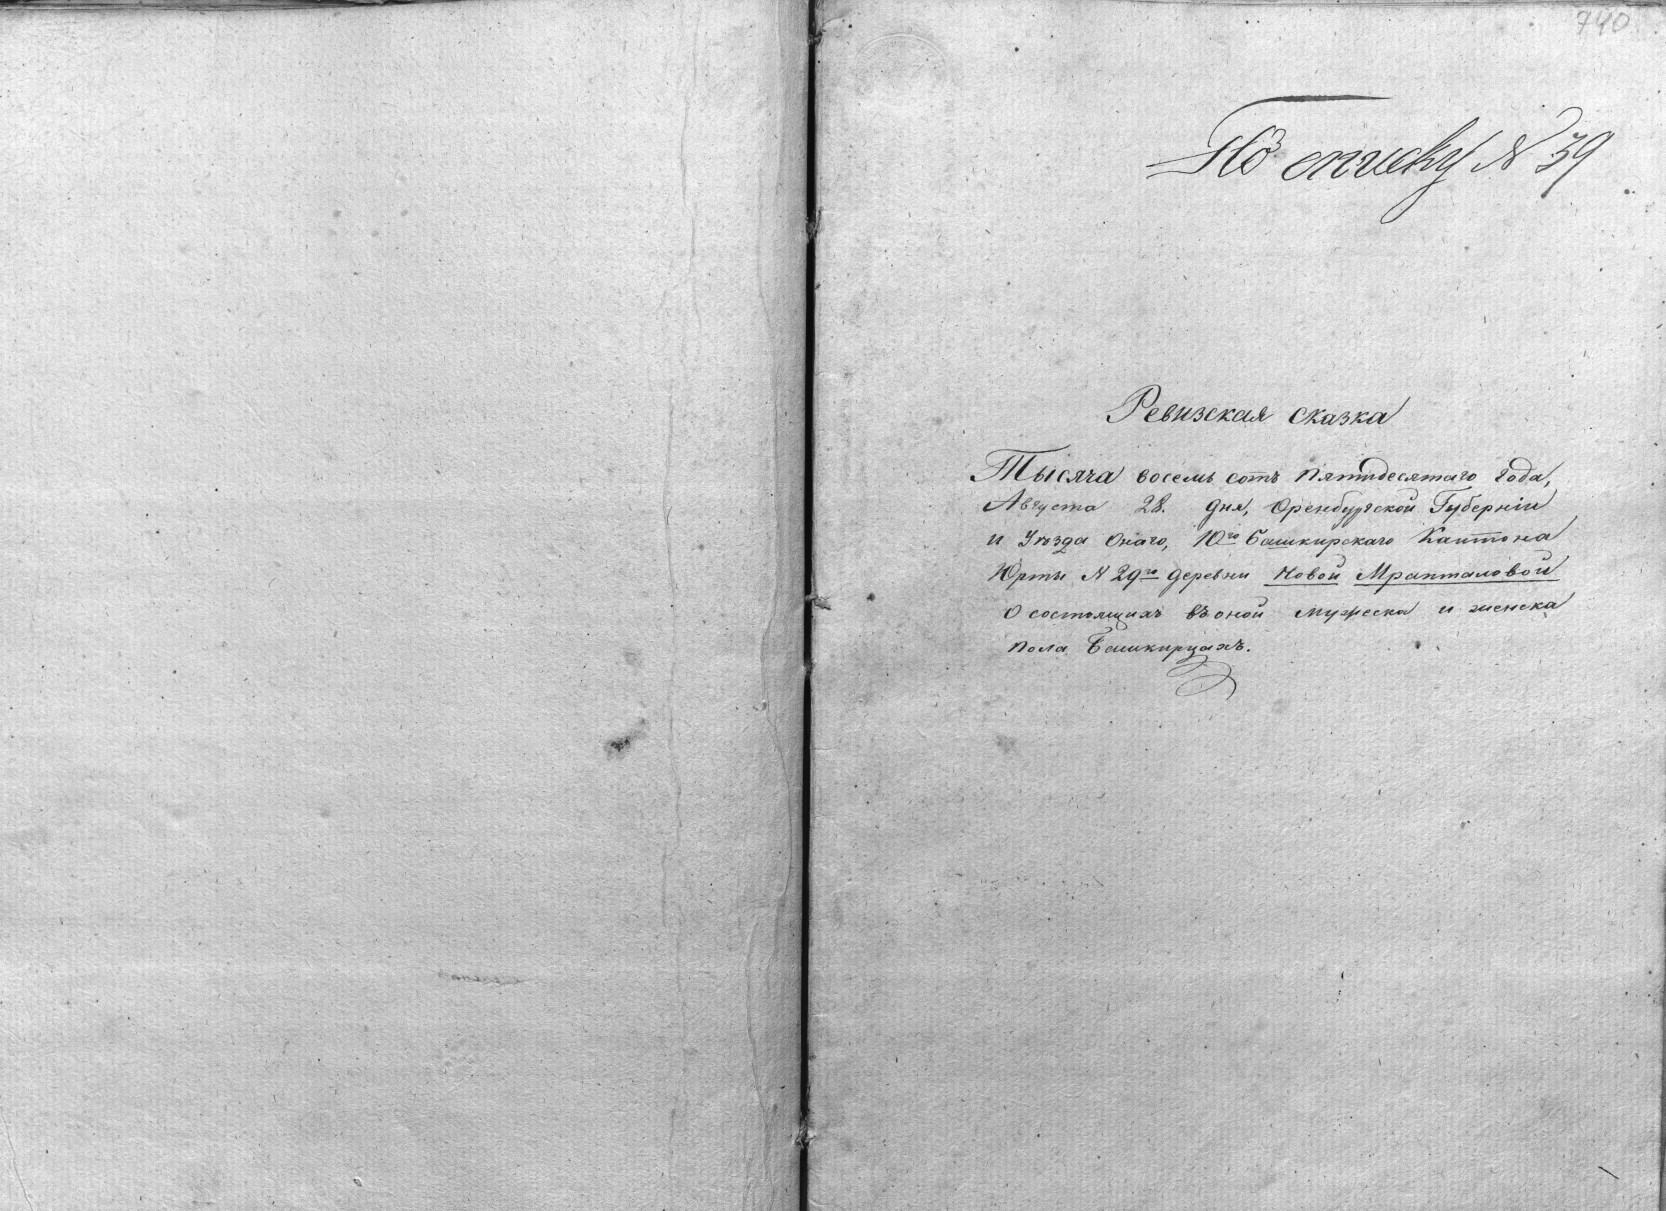 740
По списку N 39
Ревизская сказка
Тысяча восемь сотъ пятидесятаго года,
Августа 28. дня, Оренбургской Губерніи
и Уѣзда онаго, 10го Башкирскаго Кантона
Юрты N 29го деревни Новой Мрапталовой
О состоящихъ въ оной мужеска и женска
пола Башкирцахъ.